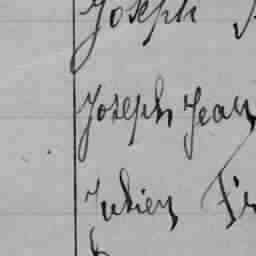 Joseph
Joseph Jean
Julien